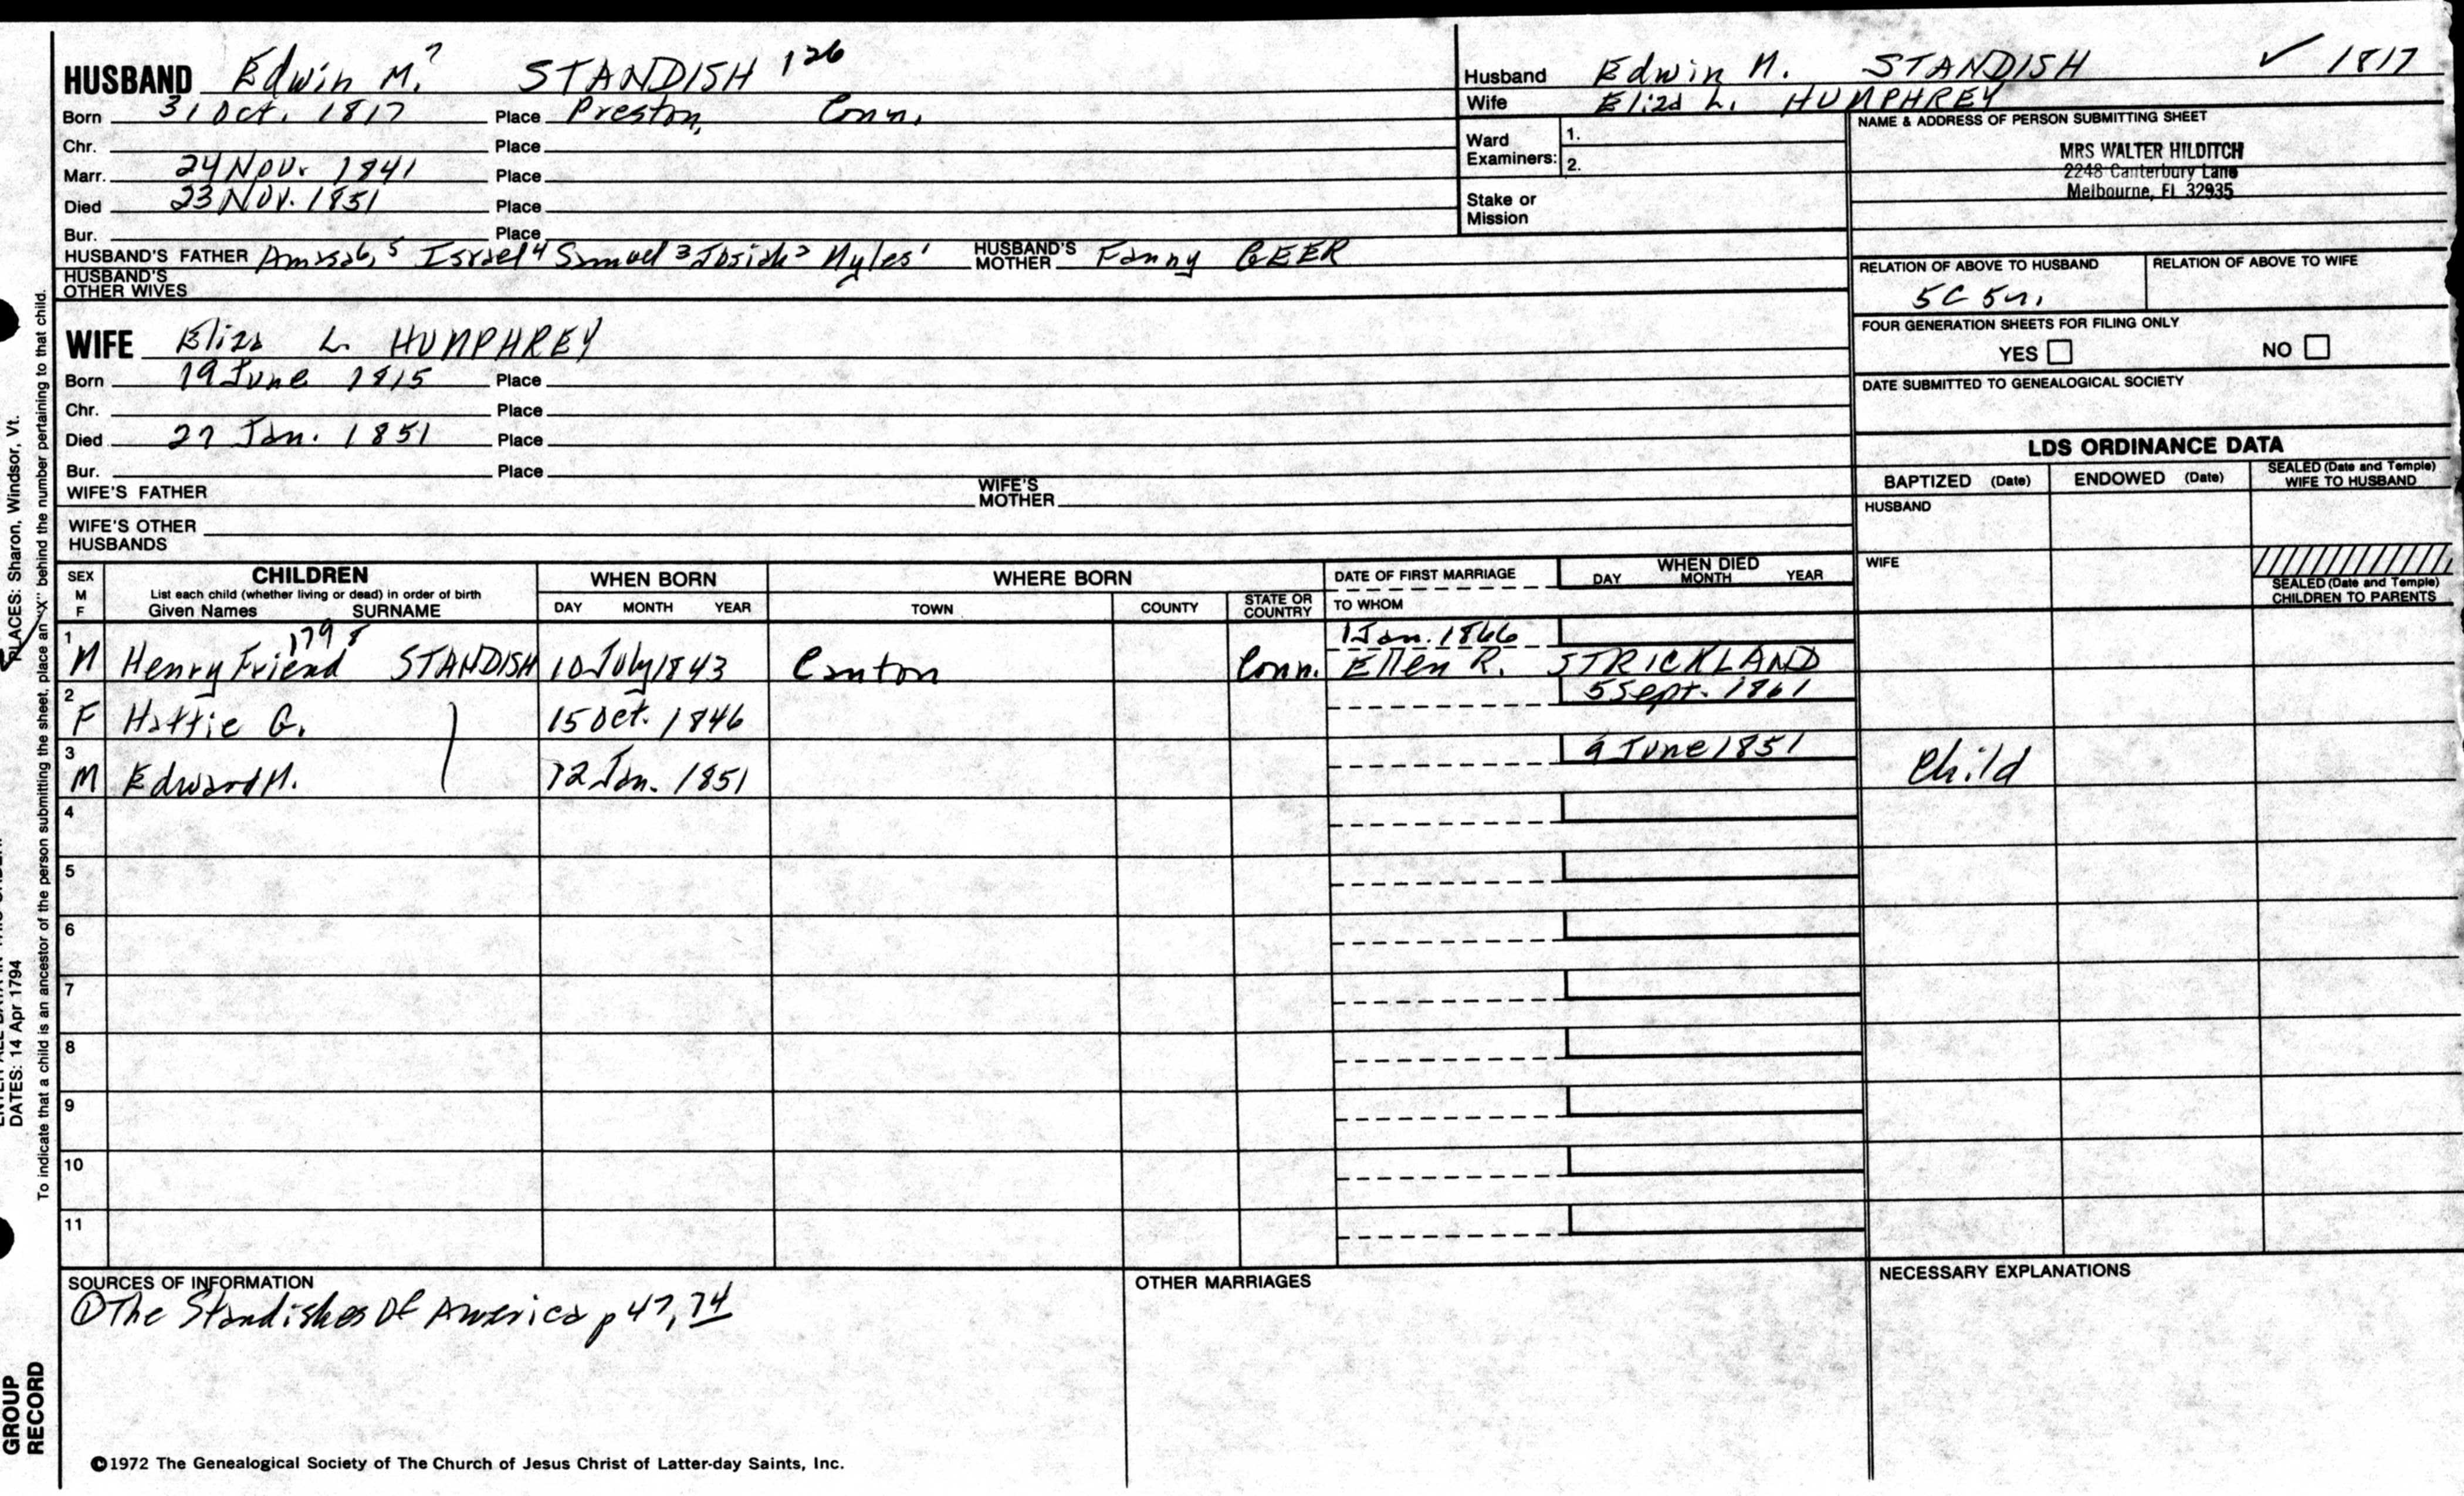 HUSBAND Edwin M.? STANDISH 126
Born 31 Oct. 1817 Place Preston, Conn.
Chr. Place
Marr. 24 Nov. 1841 Place
Died 23 Nov. 1851 Place
Bur. Place
HUSBAND'S FATHER Amasab, 5 Israel 4 Samuel 3 Josiah 2 Myles 1 HUSBAND'S MOTHER Fanny GEER
HUSBAND'S OTHER WIVES
WIFE Eliza L. HUMPHREY
Born 19 June 1815 Place
Chr. Place
Died 27 Jan. 1851 Place
Bur. Place
WIFE'S FATHER WIFE'S MOTHER
WIFE'S OTHER HUSBANDS
Husband Edwin M. STANDISH ✓ 1817
Wife Eliza L. HUMPHREY
Ward Examiners: 1.
2.
Stake or Mission
NAME & ADDRESS OF PERSON SUBMITTING SHEET
MRS WALTER HILDITCH
2248 Canterbury Lane
Melbourne, FL 32935
RELATION OF ABOVE TO HUSBAND RELATION OF ABOVE TO WIFE
5C 5r.
FOUR GENERATION SHEETS FOR FILING ONLY
YES NO
DATE SUBMITTED TO GENEALOGICAL SOCIETY
LDS ORDINANCE DATA
BAPTIZED (Date) ENDOWED (Date) SEALED (Date and Temple) WIFE TO HUSBAND
HUSBAND
WIFE
SEALED (Date and Temple) CHILDREN TO PARENTS
SEX M F
CHILDREN
List each child (whether living or dead) in order of birth
Given Names SURNAME
WHEN BORN
DAY MONTH YEAR
WHERE BORN
TOWN COUNTY STATE OR COUNTRY
DATE OF FIRST MARRIAGE
TO WHOM
WHEN DIED
DAY MONTH YEAR
1 M Henry Friend 1798 STANDISH 10 July 1843 Canton Conn. 1 Jan. 1866 Ellen R. STRICKLAND
2 F Hattie G. 15 Oct. 1846 5 Sept. 1861
3 M Edward M. 12 Jan. 1851 9 June 1851 Child
4
5
6
7
8
9
10
11
SOURCES OF INFORMATION
① The Standishes Of America p 47, 74
OTHER MARRIAGES
NECESSARY EXPLANATIONS
©1972 The Genealogical Society of The Church of Jesus Christ of Latter-day Saints, Inc.
PLACES: Sharon, Windsor, Vt.
DATES: 14 Apr 1794
To indicate that a child is an ancestor of the person submitting the sheet, place an "X" behind the number pertaining to that child.
GROUP
RECORD